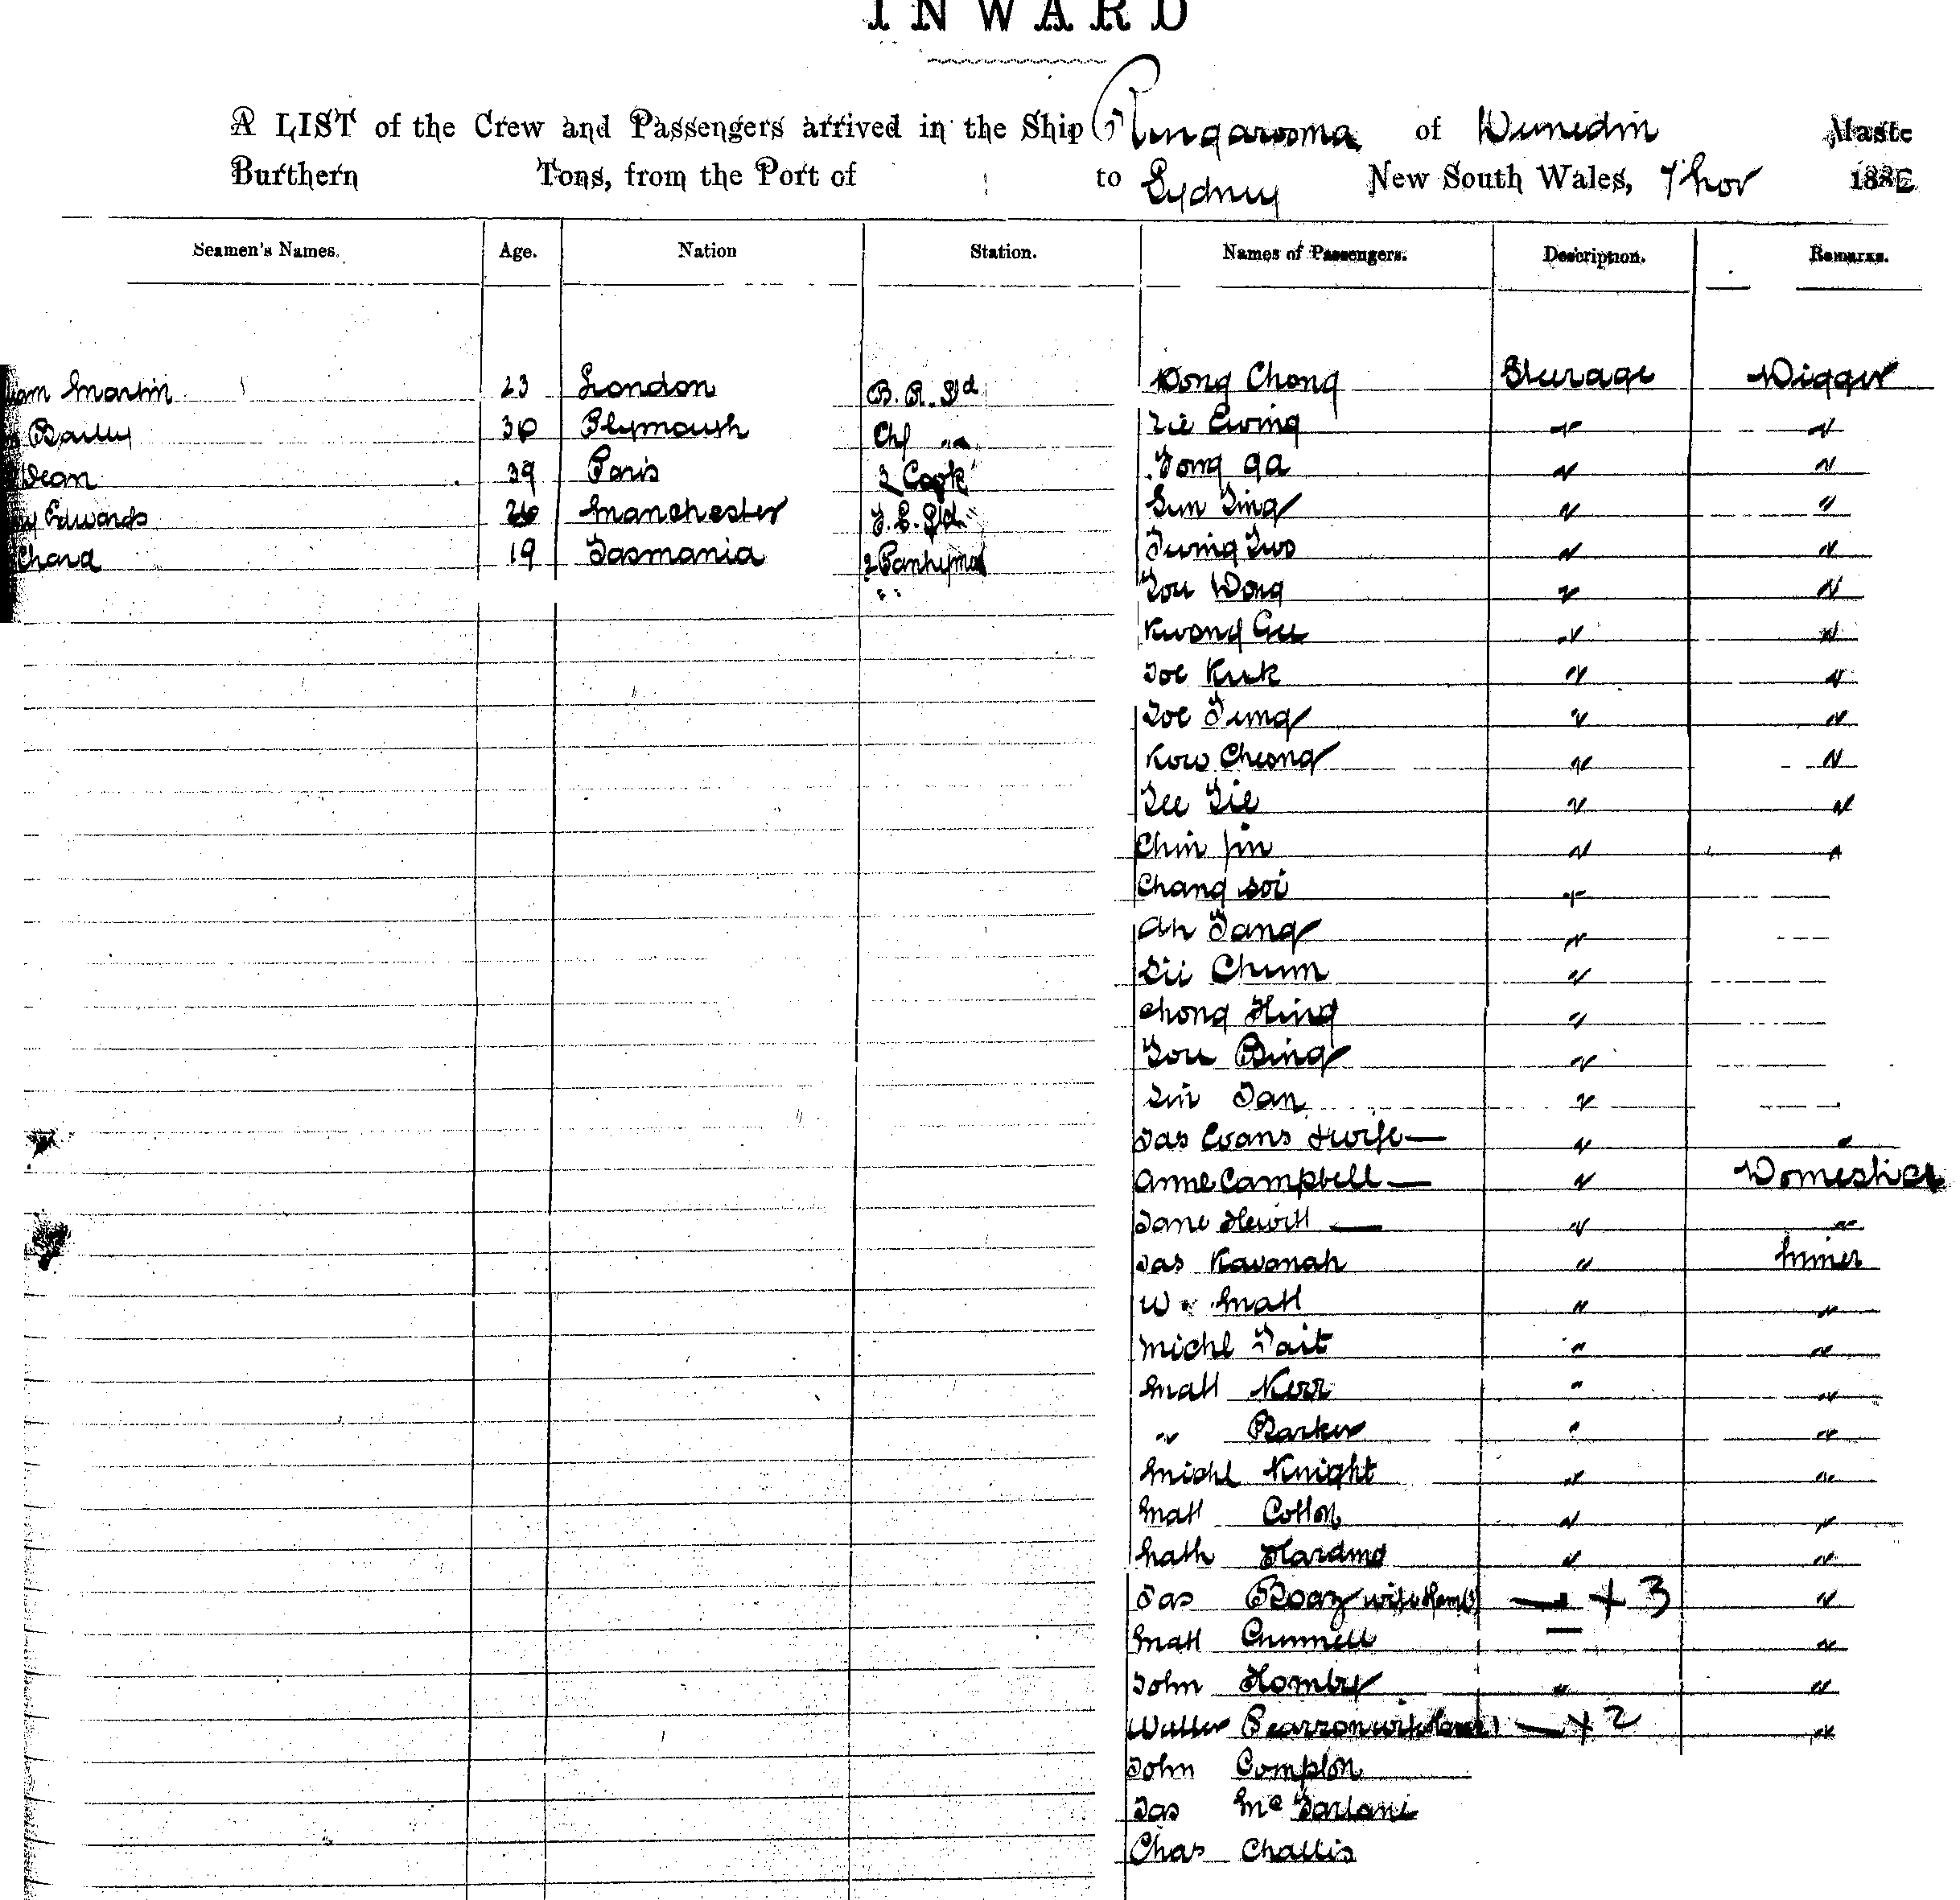 INWARD
A LIST of the Crew and Passengers arrived in the Ship Ringarooma of Dunedin Maste
Burthern Tons, from the Port of to Sydney New South Wales, 7 Nov 188
Seamen's Names. Age. Nation Station. Names of Passengers. Description. Remarks.
iam Martin 23 London B. R. Std Dong Chong Steerage Digger
Bailly 30 Plymouth Chf " Lie Ewing " "
Dean 39 Paris 3 Cook Fong Ga " "
y Edwards 26 Manchester F. C. Std. Sun Sing " "
Chard 19 Tasmania 2 Pantryman " "
You Wong " "
Kwong Gee " "
Joe Kuk " "
Joe " "
Kow Cheong " "
Lee Lie " "
Chin Jin " "
Chang Soi "
Ah Fang "
Sii Chum "
Chong Hing "
You Bing "
Sin Tan "
Jas Evans & wife — " "
Anne Campbell — " Domestics
Jane Hewitt — " "
Jas Kavanah " Miner
W Matt " "
Michl Tait " "
Matt Kerr " "
" Barker " "
Michl Knight " "
Matt Cotton " "
Nath " "
Jas Boaz wife & fam (3) — + 3 "
Matt Chunnell — "
John Homby " "
Walter Pearson wife — + 2 "
John Compton
Jas McFarlane
Chas Challis